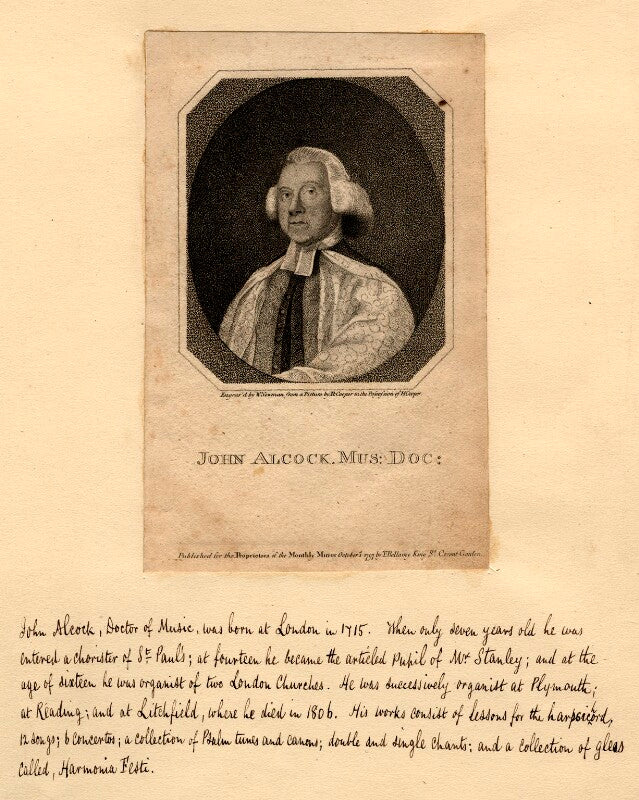 Engrav'd by W. Newman, from a Picture by R. Cooper in the Possession of H. Cooper
JOHN ALCOCK. MUS: DOC:
Published for the Proprietors of the Monthly Mirror October 1 1797 by T. Bellamy King St. Covent Garden.
John Alcock, Doctor of Music, was born at London in 1715. When only seven years old he was
entered a chorister of St. Paul's; at fourteen he became the articled pupil of Mr Stanley; and at the
age of sixteen he was organist of two London Churches. He was successively organist at Plymouth;
at Reading; and at Litchfield, where he died in 1806. His works consist of lessons for the harpsicord,
12 songs; 6 concertos; a collection of Psalm tunes and canons; double and single chants; and a collection of glees
called, Harmonia Festi.